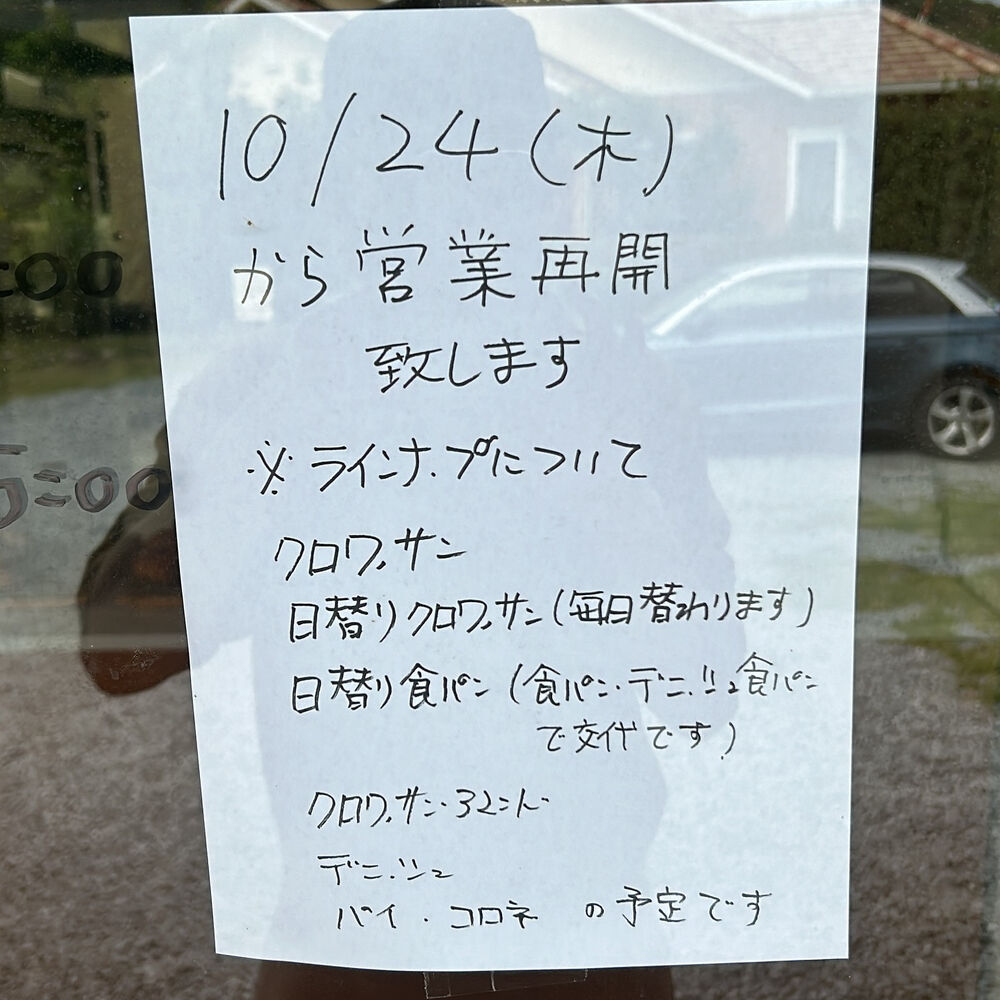 10/24(木)
から営業再開
致します
※ラインナップについて
クロワッサン
日替りクロワッサン(毎日替わります)
日替り食パン(食パン・デニッシュ食パン
で交代です)
クロワッサン・ダマンド
デニッシュ
パイ・コロネ の予定です
:00
5:00